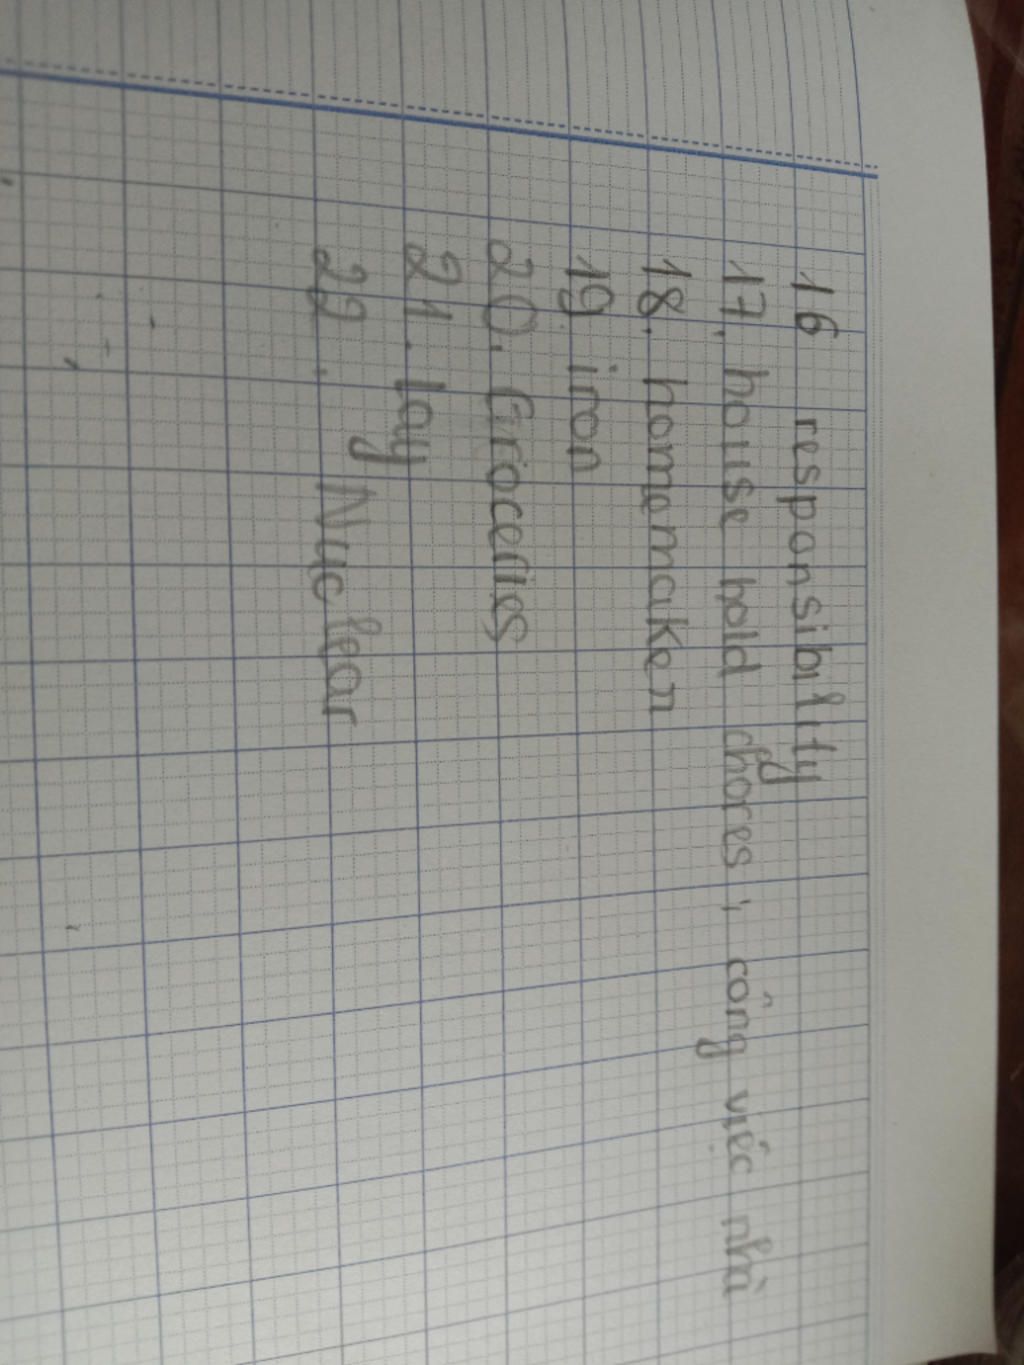 16 responsibility
17. house hold chores, công việc nhà
18. homemaker
19. iron
20. Groceries
21. lay
22. Nuclear